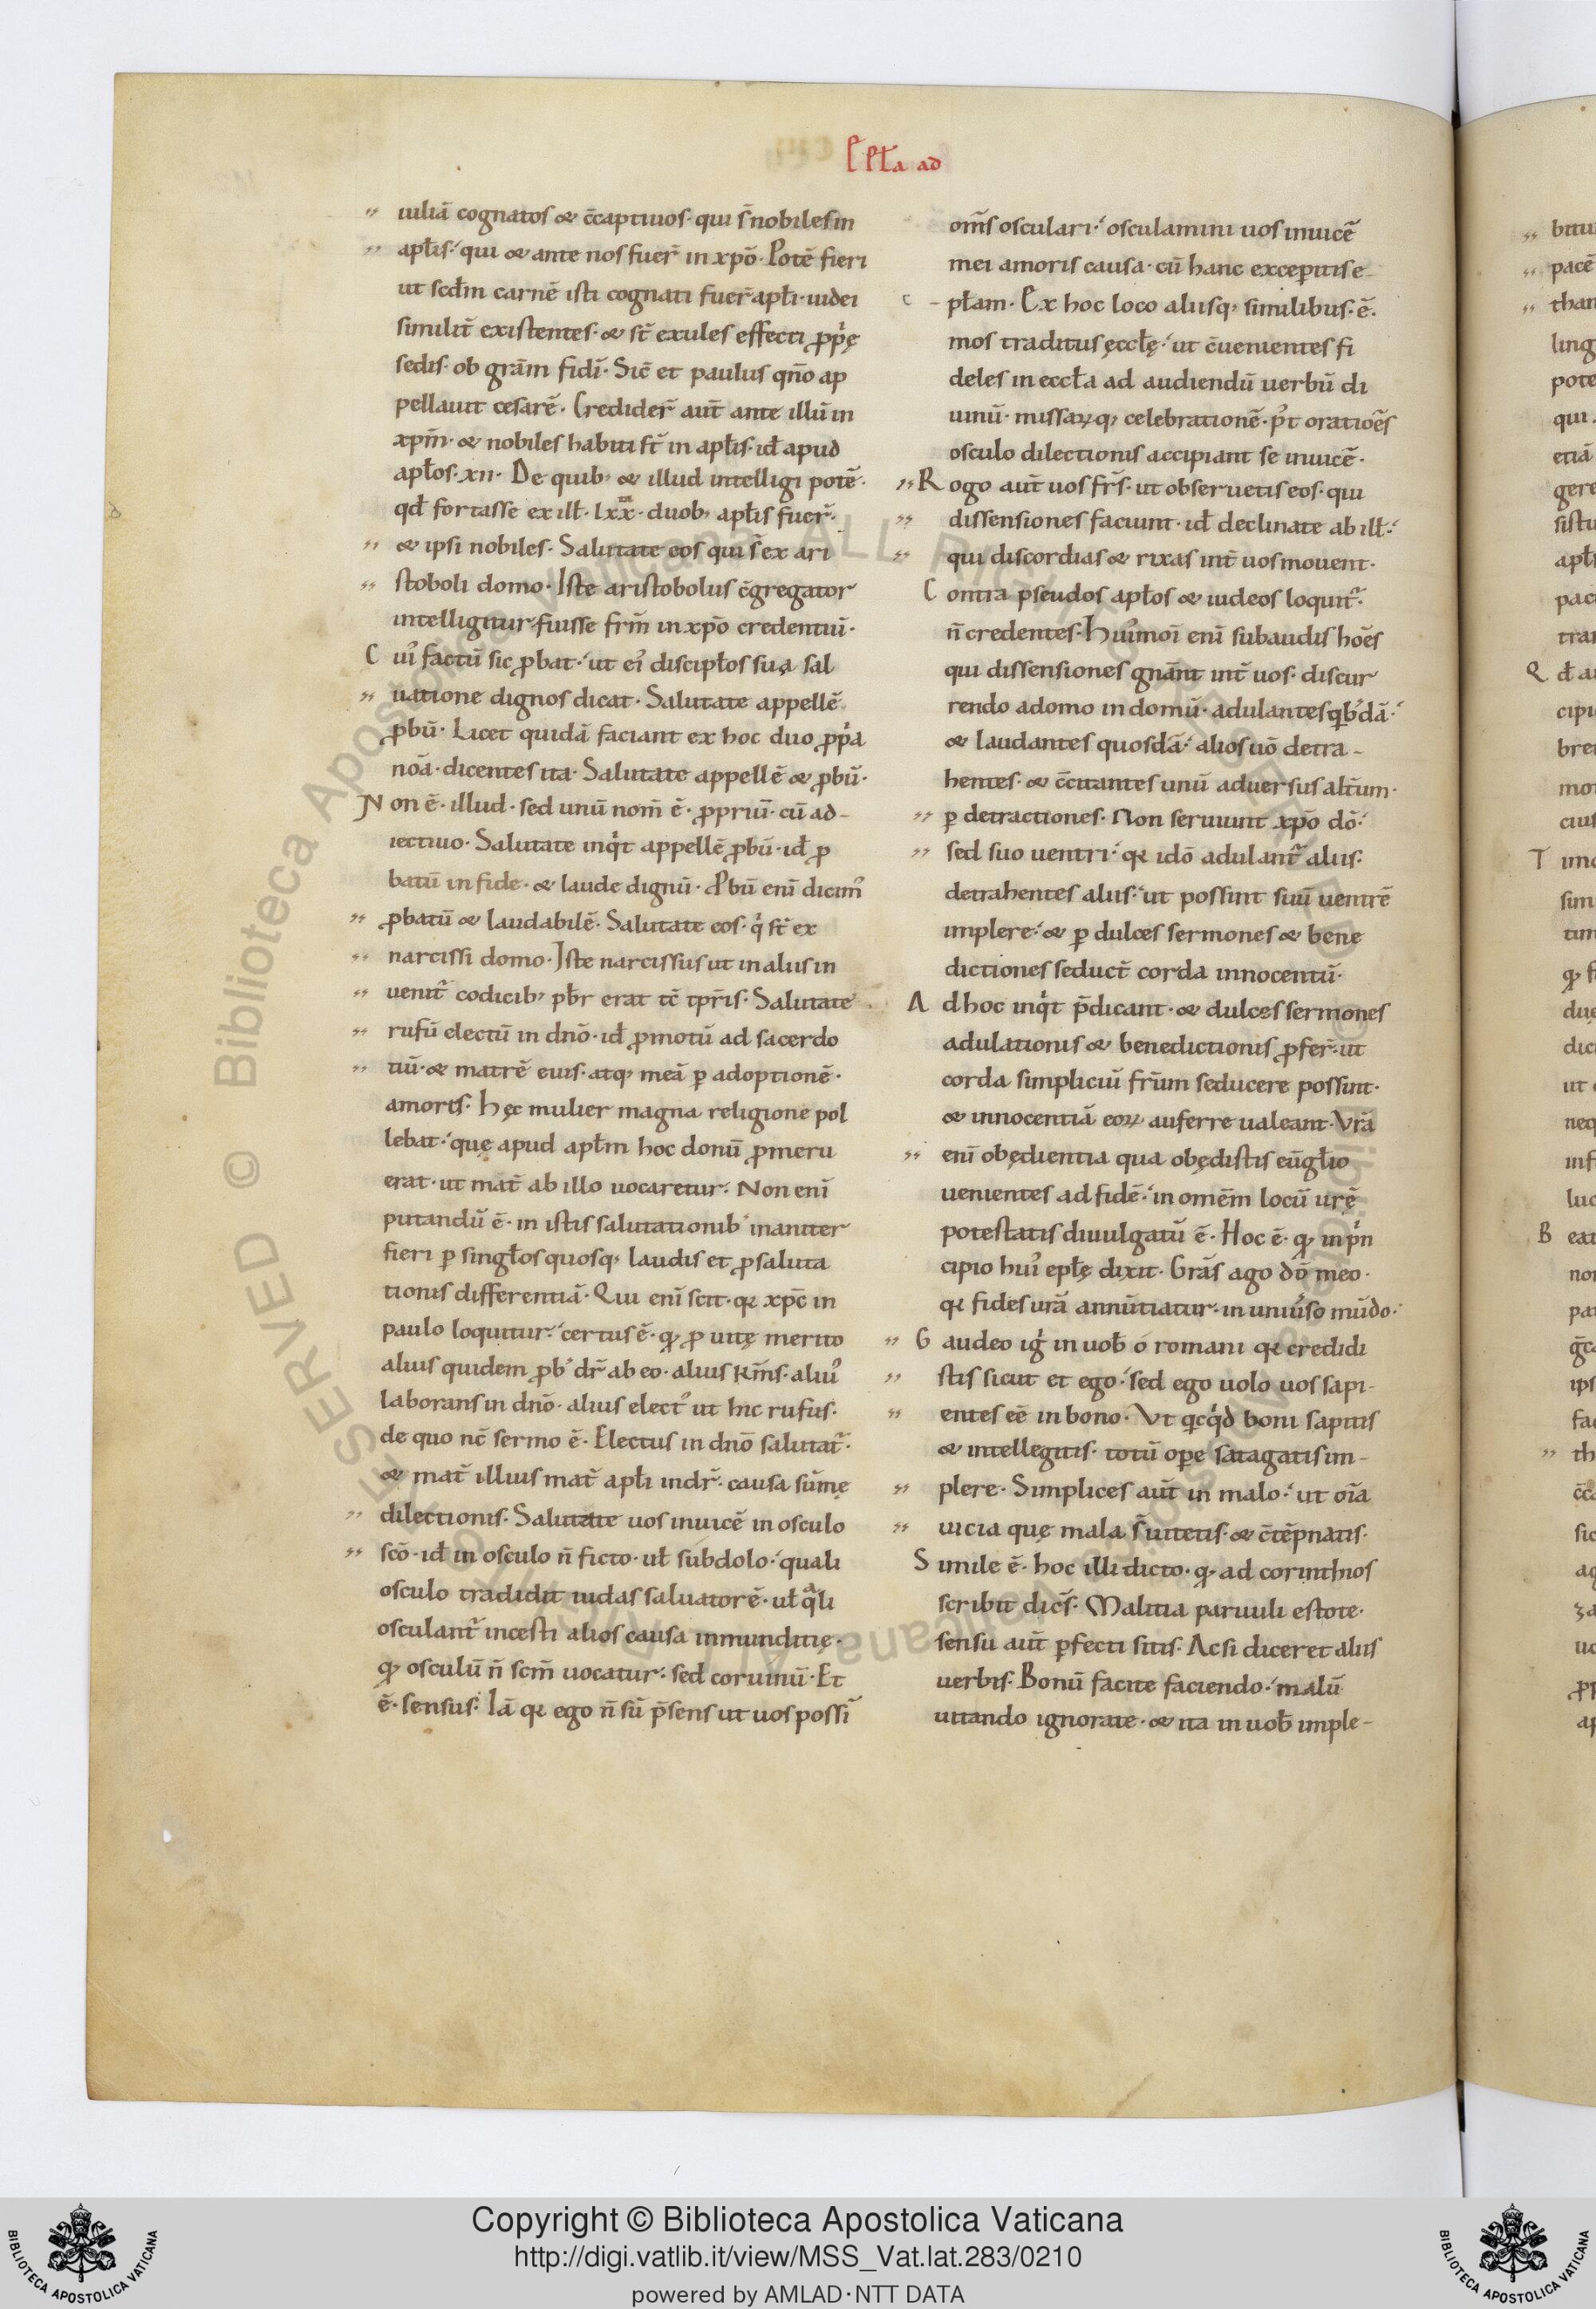 Epła ad
iuliā cognatos & c̄captiuos· qui s̄ nobiles in
apłis·́ qui & ante nos fuer̄ in xpō· Potē fieri
ut scđm carnē isti cognati fuer̄ apłi· iudei
similit̄ existentes· & st̄ exules effecti ꝓpͥę
sedis· ob grām fidī· Sic̄ et paulus qn̄o ap
pellauit cesarē· Credider̄ aut̄ ante illū in
xpm̄· & nobiles habiti st̄ in apłis· iđ apud
apłos· xii· De quib; & illud intelligi potē·
qđ fortasse ex ill̵· lxx· duob; apłis fuer̄·
„ & ipsi nobiles· Salutate eos qui s̄ ex ari
„ stoboli domo· Iste aristobolus c̄gregator
intelligitur fuisse frm̄ in xpō credentiū·
C ui᾽ factū sic ꝓbat·́ ut ei᾽ discipłos sua sal
„ uatione dignos dicat· Salutate appellē
ꝓbū· Licet quidā faciant ex hoc duo ꝓpͥa
noā· dicentes ita· Salutate appellē & ꝓbū·
N on ē· illud· sed unū nom̄ ē· ꝓpriū· cū ad-
iectiuo· Salutate inqͥt appellē ꝓbū· iđ ꝓ
batū in fide· & laude dignū· Ꝓbū enī dicim᾽
„ ꝓbatū & laudabilē· Salutate eos· qͥ st̄ ex
„ narcissi domo· Iste narcissus ut in aliis in
„ uenit᷑ codicib; pb̄r erat tc̄ tpr̄is· Salutate
„ rufū electū in dnō· iđ ꝓmotū ad sacerdo
„ tiū· & matrē eius· atq; meā ꝑ adoptionē·
amoris· Hęc mulier magna religione pol
lebat·́ quę apud apłm hoc donū ꝓmeru
erat· ut mat̄ ab illo uocaretur· Non enī
putandū ē· in istis salutationib᾽ inaniter
fieri ꝑ singłos quosq; laudis et ꝓ saluta
tionis differentiā· Qui enī scit· qꝛ xpc̄ in
paulo loquitur·́ certus ē· qꝫ ꝓ uitę merito
alius quidem ꝓb᾽ dr̄ ab eo· alius km̄s· aliu᾽
laborans in dnō· alius elect᾽ ut hic rufus·
de quo nc̄ sermo ē· Electus in dnō salutat᷑·
& mat̄ illius mat̄ apłi indr̄· causa sūmę
„ dilectionis· Salutate uos inuicē in osculo
„ scō· iđ in osculo n̄ ficto· ut̵ subdolo·́ quali
osculo tradidit iudas saluatorē· ut̵ qͣli
osculant᷑ incesti alios causa inmunditię·
qꝫ osculū n̄ scm̄ uocatur·́ sed coruinū· Et
ē· sensus· Iā qꝛ ego n̄ sū p̄sens ut uos possī
om̄s osculari·́ osculamini uos inuicē
mei amoris causa· cū hanc exceperitis e-
płam· Ex hoc loco aliisq; similibus· ē·
mos traditus ęcclę·́ ut c̄uenientes fi
deles in eccła ad audiendū uerbū di
uinū· missaꝝq; celebrationē· p᾽t oratiōes
osculo dilectionis accipiant se inuicē·
„ R ogo aut̄ uos frs̄· ut obseruetis eos· qui
„ dissensiones faciunt· iđ declinate ab ill̵·́
„ qui discordias & rixas int̄ uos mouent·
C ontra pseudos apłos & iudeos loquit᷑·
n̄ credentes· Hui᾽moī enī subaudis hoēs
qui dissensiones gnānt int̄ uos· discur
rendo a domo in domū· adulantes qͥb᾽dā·́
& laudantes quosdā·́ alios uō detra-
hentes· & c̄citantes unū aduersus alt̄um·
„ ꝑ detractiones· Non seruiunt xpō dō·́
„ sed suo uentri·́ qꝛ idō adulant᷑ aliis·
detrahentes aliis·́ ut possint suū uentrē
implere·́ & ꝑ dulces sermones & bene
dictiones seduct̄ corda innocentū·
A d hoc inqͥt p̄dicant· & dulces sermones
adulationis & benedictionis ꝓfer̄· ut
corda simpliciū frūm seducere possint·
& innocentiā eoꝝ auferre ualeant· Vrā
„ enī obędientia qua obędistis eūgłio
uenientes ad fidē·́ in omēm locū urę̄
potestatis diuulgatū ē· Hoc ē· qꝫ in pͥn
cipio hui᾽ epłę dixit· Grās ago dō meo·
qꝛ fides urā annūtiatur· in uniu᾽so mūdo·
„ G audeo igͥ in uob̄ ó romani qꝛ credidi
„ stis sicut et ego·́ sed ego uolo uos sapi-
„ entes eē in bono· Vt qͥcqͥd boni sapitis
& intellegitis· totū opę satagatis im-
„ plere· Simplices aut̄ in malo·́ ut oīa
„ uicia quę mala s̄ uitetis· & c̄tēpnatis·
S imile ē· hoc illi dicto· qꝫ ad corinthios
scribit dic̄s· Malitia paruuli estote·
sensu aut̄ ꝑfecti sitis· Ac si diceret aliis
uerbis· Bonū facite faciendo·́ malū
uitando ignorate· & ita in uob̄ imple-
Copyright © Biblioteca Apostolica Vaticana
http://digi.vatlib.it/view/MSS_Vat.lat.283/0210
powered by AMLAD·NTT DATA
BIBLIOTECA APOSTOLICA VATICANA
BIBLIOTECA APOSTOLICA VATICANA